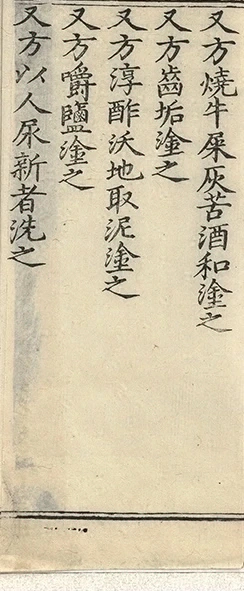 又方燒牛屎灰苦酒和塗之
又方齒垢塗之
又方淳酢沃地取泥塗之
又方嚼鹽塗之
又方以人尿新者洗之